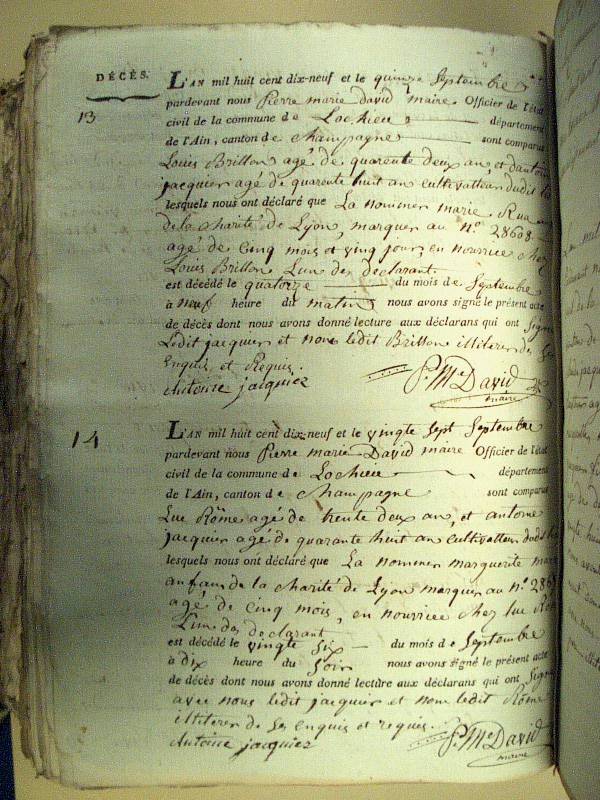 DÉCÈS.
13
L'AN mil huit cent dix-neuf et le quinze Septembre
pardevant nous Pierre marie david maire Officier de l'état
civil de la commune de Lochieu département
de l'Ain, canton de champagne sont comparus
Louis Brillon agé de quarente deux an, et dantoine
jacquier agé de quarente huit an cultivatteur dudit
lesquels nous ont déclaré que La nommer marie Rua
de la charité de Lyon, marquer au n.º 28608
agé de Cinq mois et vingt jour, en nourrice chez
Louis Brillon Lun des declarant
est décédé le quatorze du mois de Septembre
à neuf heure du matin nous avons signé le présent acte
de décès dont nous avons donné lecture aux déclarans qui ont Signé
Ledit jacquier et non ledit Brillon illiterer de Ses
Enquis et Requis.
Antoine jacquier P. Me David
maire
14
L'AN mil huit cent dix-neuf et le vingte Sept Septembre
pardevant nous Pierre marie David maire Officier de l'état
civil de la commune de Lochieu département
de l'Ain, canton de champagne sont comparus
Luc Röme agé de trente deux an, et antoine
jacquier agé de quarante huit an cultivatteur dudit
lesquels nous ont déclaré que La nommer marguerite
anfans de la charité de Lyon marquer au n.º
agé de Cinq mois, en nourrice chez luc
Lun des declarant
est décédé le vingte Six du mois de Septembre
à dix heure du Soir nous avons signé le présent acte
de décès dont nous avons donné lecture aux déclarans qui ont Signé
avec nous ledit jacquier et non ledit Röme
illiterer de Ses Enquis et requis.
Antoine jacquier P. Me David
maire